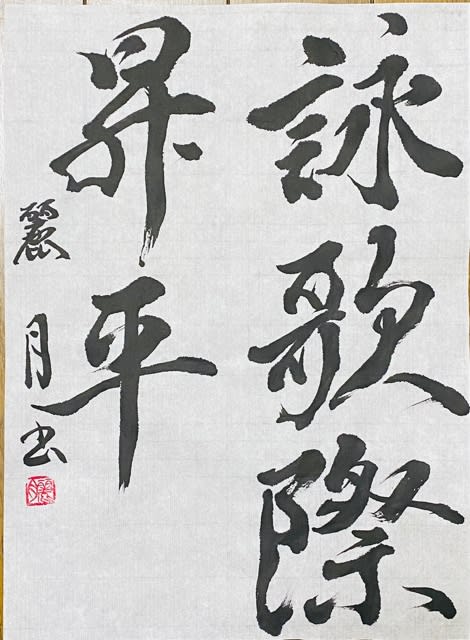 詠歌際
昇平
麗月書